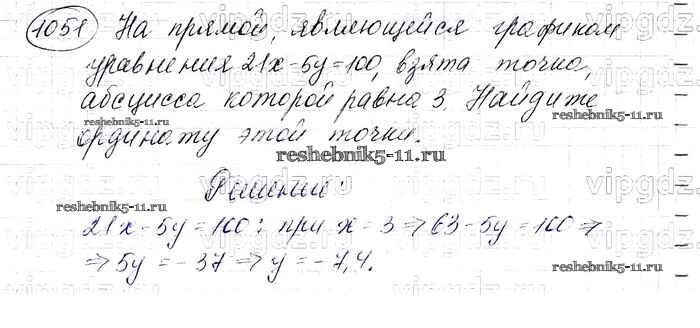 1051 На прямой, являющейся графиком
уравнения 21x-5y=100, взята точка,
абсцисса которой равна 3. Найдите
ординату этой точки.
reshebnik5-11.ru
reshebnik5-11.ru
reshebnik5-11.ru
Решение:
reshebnik5-11.ru
21x-5y=100: при x=3 ⇒ 63-5y=100 ⇒
⇒ 5y=-37 ⇒ y=-7,4.
reshebnik5-11.ru